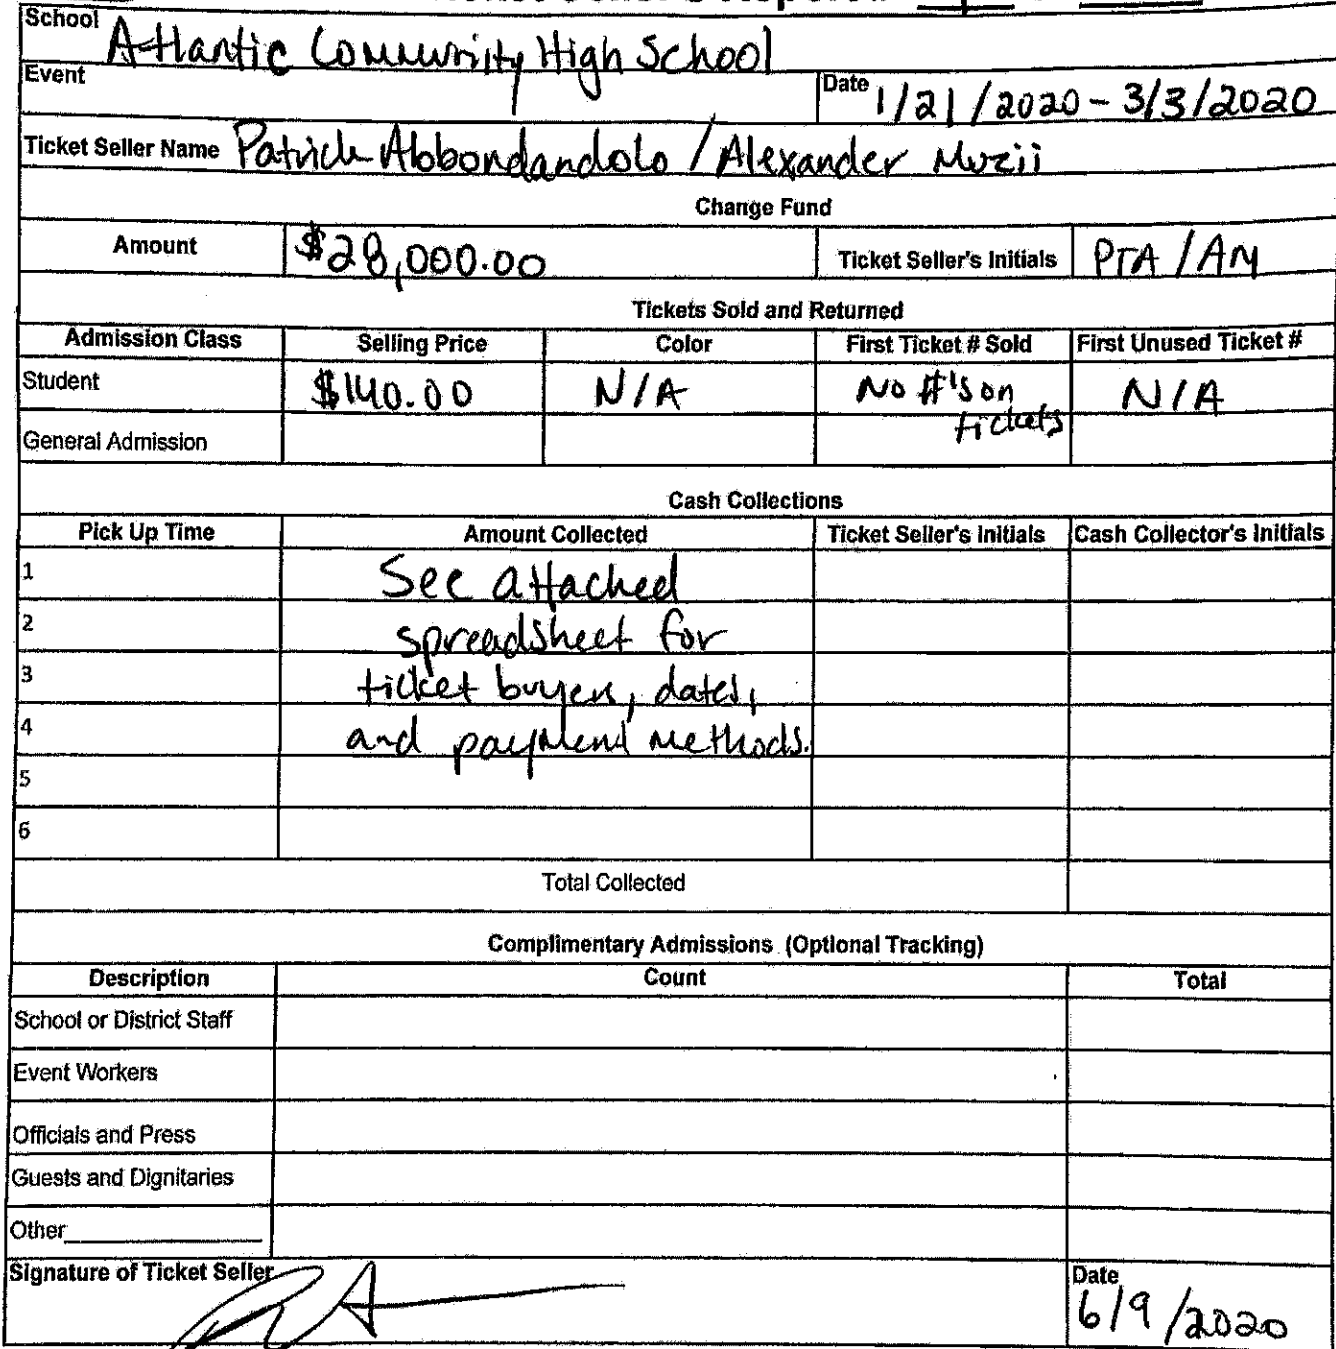 School Atlantic Community High School
Event Date 1/21/2020 - 3/3/2020
Ticket Seller Name Patrick Abbondandolo / Alexander Muzii
Change Fund
Amount $28,000.00 Ticket Seller's Initials PTA / AM
Tickets Sold and Returned
Admission Class Selling Price Color First Ticket # Sold First Unused Ticket #
Student $140.00 N/A No #'s on tickets N/A
General Admission
Cash Collections
Pick Up Time Amount Collected Ticket Seller's Initials Cash Collector's Initials
1 See attached
2 spreadsheet for
3 ticket buyers, dates,
4 and payment methods.
5
6
Total Collected
Complimentary Admissions (Optional Tracking)
Description Count Total
School or District Staff
Event Workers
Officials and Press
Guests and Dignitaries
Other
Signature of Ticket Seller Date
6/9/2020